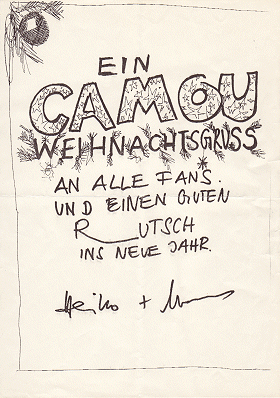 EIN
CAMOU
WEIHNACHTSGRUSS
AN ALLE FANS.
UND EINEN GUTEN
R_UTSCH
INS NEUE JAHR.
Heiko +